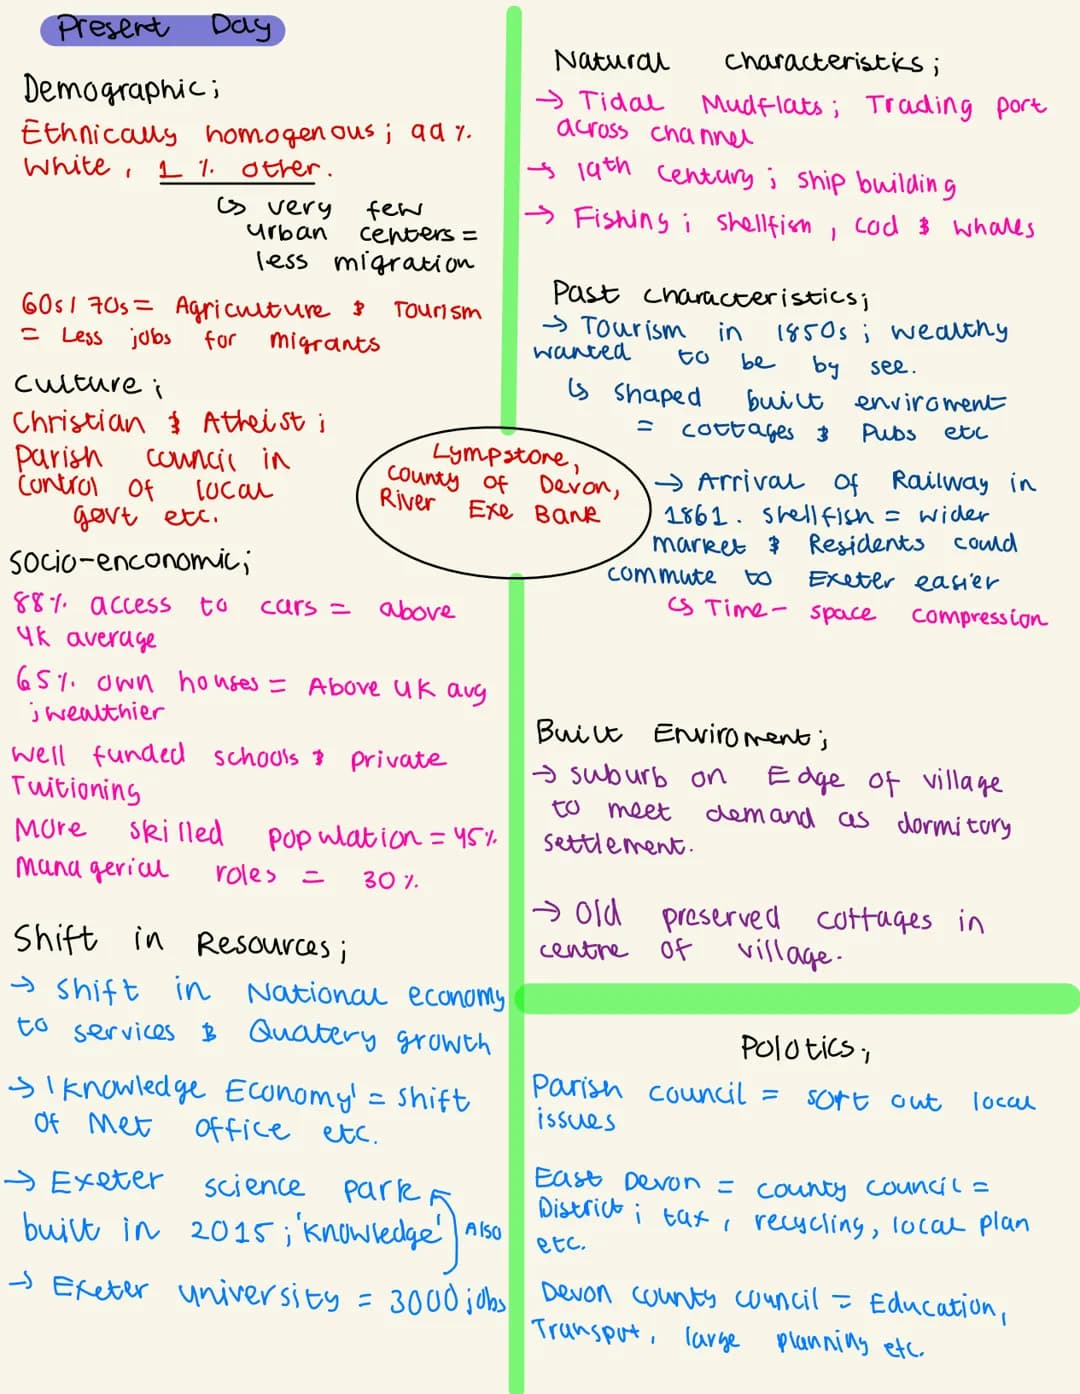 Present Day
Demographic;
Ethnically homogenous; 99%.
White, 1% other.
↳ very few
urban centers =
less migration
60s/70s = Agriculture & Tourism
= Less jobs for migrants
Culture;
Christian & Atheist;
Parish council in
control of local
govt etc.
Socio-enconomic;
88% access to cars = above
UK average
65% own houses = Above UK avg
; wealthier
Well funded schools & private
Tuitioning
More skilled population = 45%.
Managerial roles = 30%.
Shift in Resources;
→ Shift in National economy
to services & Quatery growth
→ 'Knowledge Economy' = shift
of Met office etc.
→ Exeter science park
built in 2015; 'knowledge' Also
→ Exeter university = 3000 jobs
Lympstone,
County of Devon,
River Exe Bank
Natural characteristics;
→ Tidal Mudflats; Trading port
across channel
→ 19th Century; ship building
→ Fishing; shellfish, cod & whales
Past characteristics;
→ Tourism in 1850s; wealthy
wanted to be by see.
↳ shaped built enviroment
= cottages & Pubs etc
→ Arrival of Railway in
1861. shellfish = wider
market & Residents could
commute to Exeter easier
↳ Time-space compression
Built Enviroment;
→ suburb on Edge of village
to meet demand as dormitory
settlement.
→ Old preserved cottages in
centre of village.
Polotics;
Parish council = sort out local
issues
East Devon = county council =
District; tax, recycling, local plan
etc.
Devon county council = Education,
Transport, large planning etc.